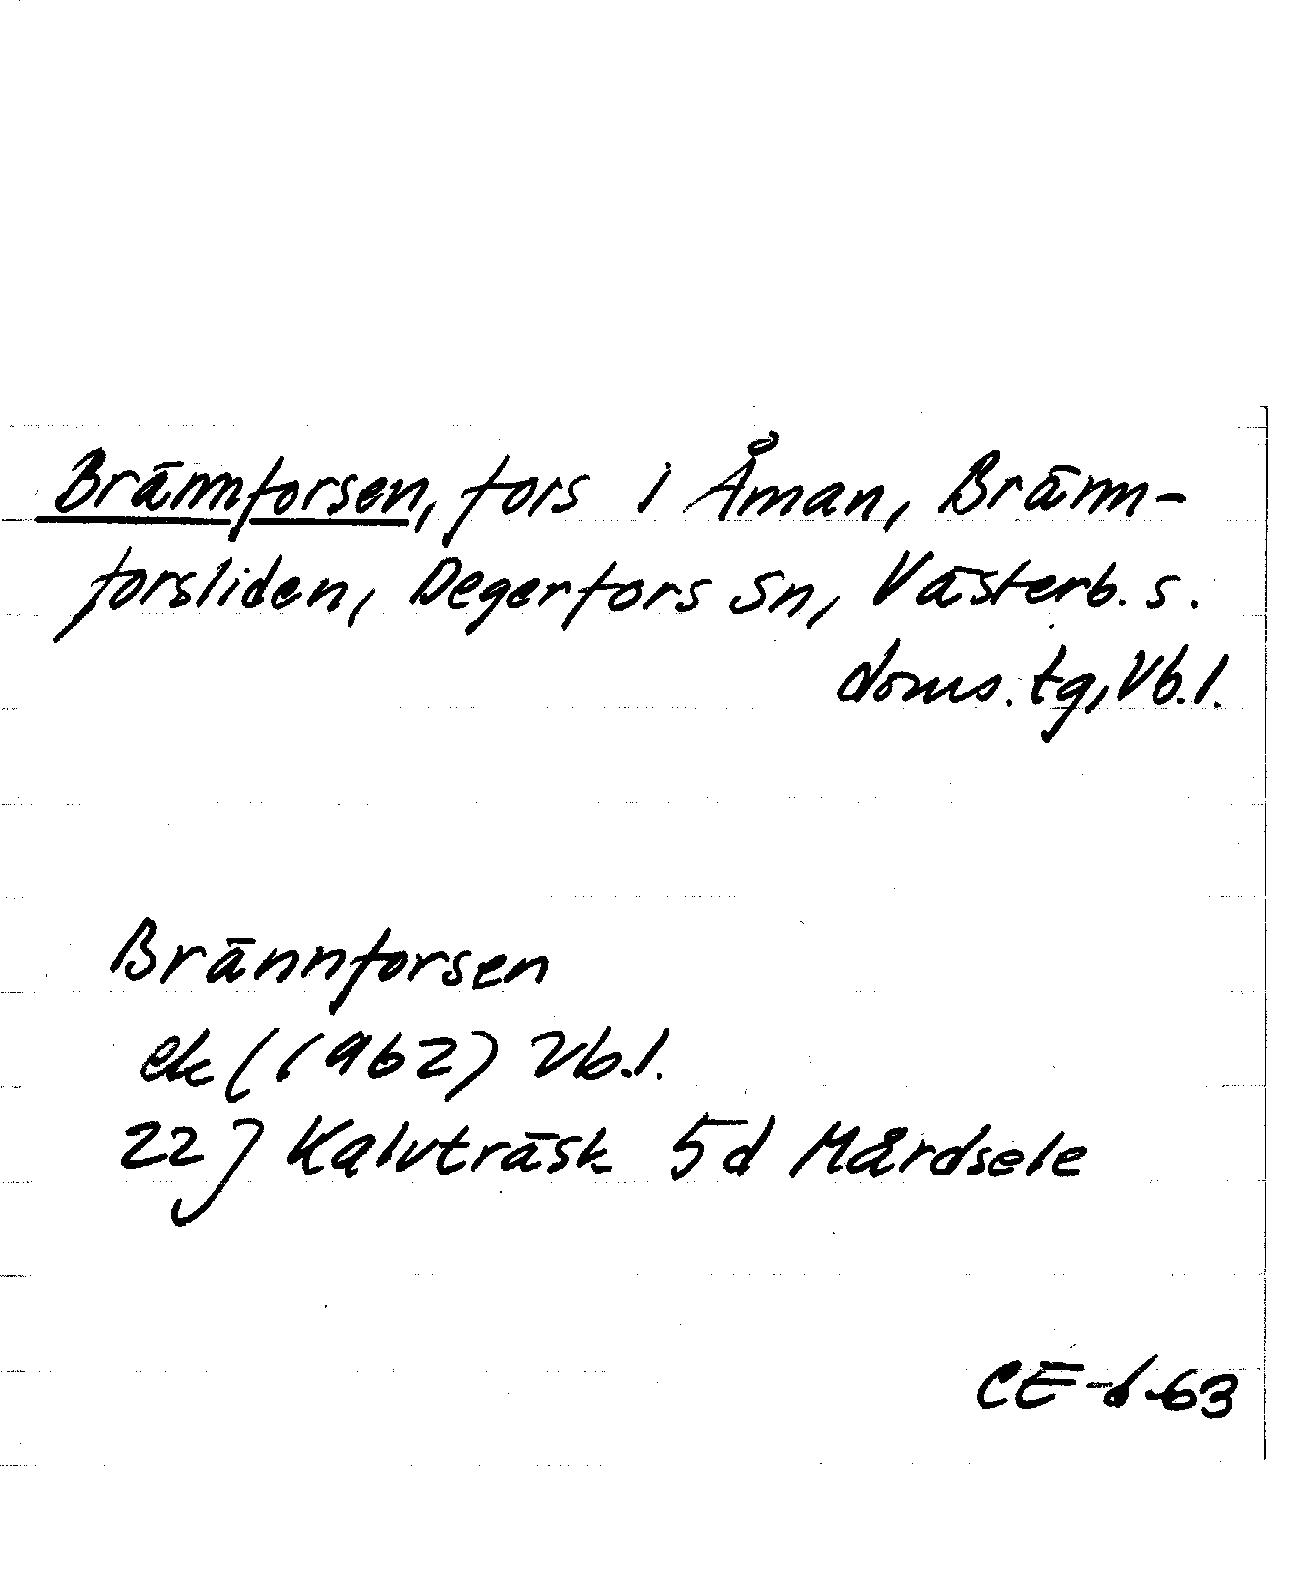 Brännforsen, fors i Åman, Bränn-
forsliden, Degerfors sn, Västerb. s.
doms. tg, Vb. l.
Brännforsen
ek (1962) Vb. l.
22 J Kalvträsk 5d Mårdsele
CE-d-63